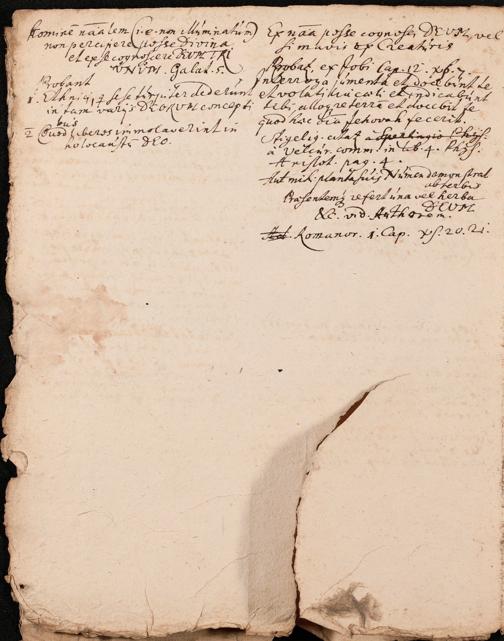 Hominē nāalem (i.e. non illuminatum)
non percipere posse Divina
et ex se cognoscere DEUM TRI
UNUM. Galat. 5.
Probant
1. Ethnici, q se se dediderunt
in tam varijs DEORUM concepti
bus
2 Quod liberos immolaverint in
holocaustū DEO.
Ex nāa posse cognosci DEUM, vel
si mavis ex Creatis
Probat ex Jobi Cap. 12. xs. 7.
Interroga jumenta et docebunt te
et volatilia cœli et indicabunt
tibi, alloqre terrā et docebit te
quod hæc oīa Jehovah fecerit.
à Velcur. comm. in Lib. 4. Phys.
Aristot. pag. 4.
Aut mihi plantasius Numen demonstrat
ab herbis
Præsentemq refert una vel herba
DEUM
&c. vid. Authorem.
Romanor. 1. Cap. xs. 20. 21.